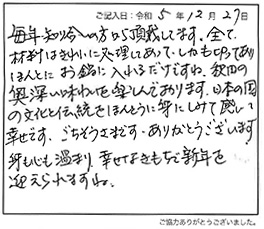 ご記入日：令和 5 年 12 月 27 日
毎年知り合いの方から頂戴してます。全て、
材料はきれいに処理してあって、しかも切ってあり
ほんとにお鍋に入れるだけですね。秋田の
奥深い味わいを楽しんでおります。日本の国
の文化と伝統をほんとうに身にしみて感じて
幸せです。ごちそうさまです。ありがとうございます
身も心も温まり、幸せなきもちで新年を
迎えられますね。
ご協力ありがとうございました。